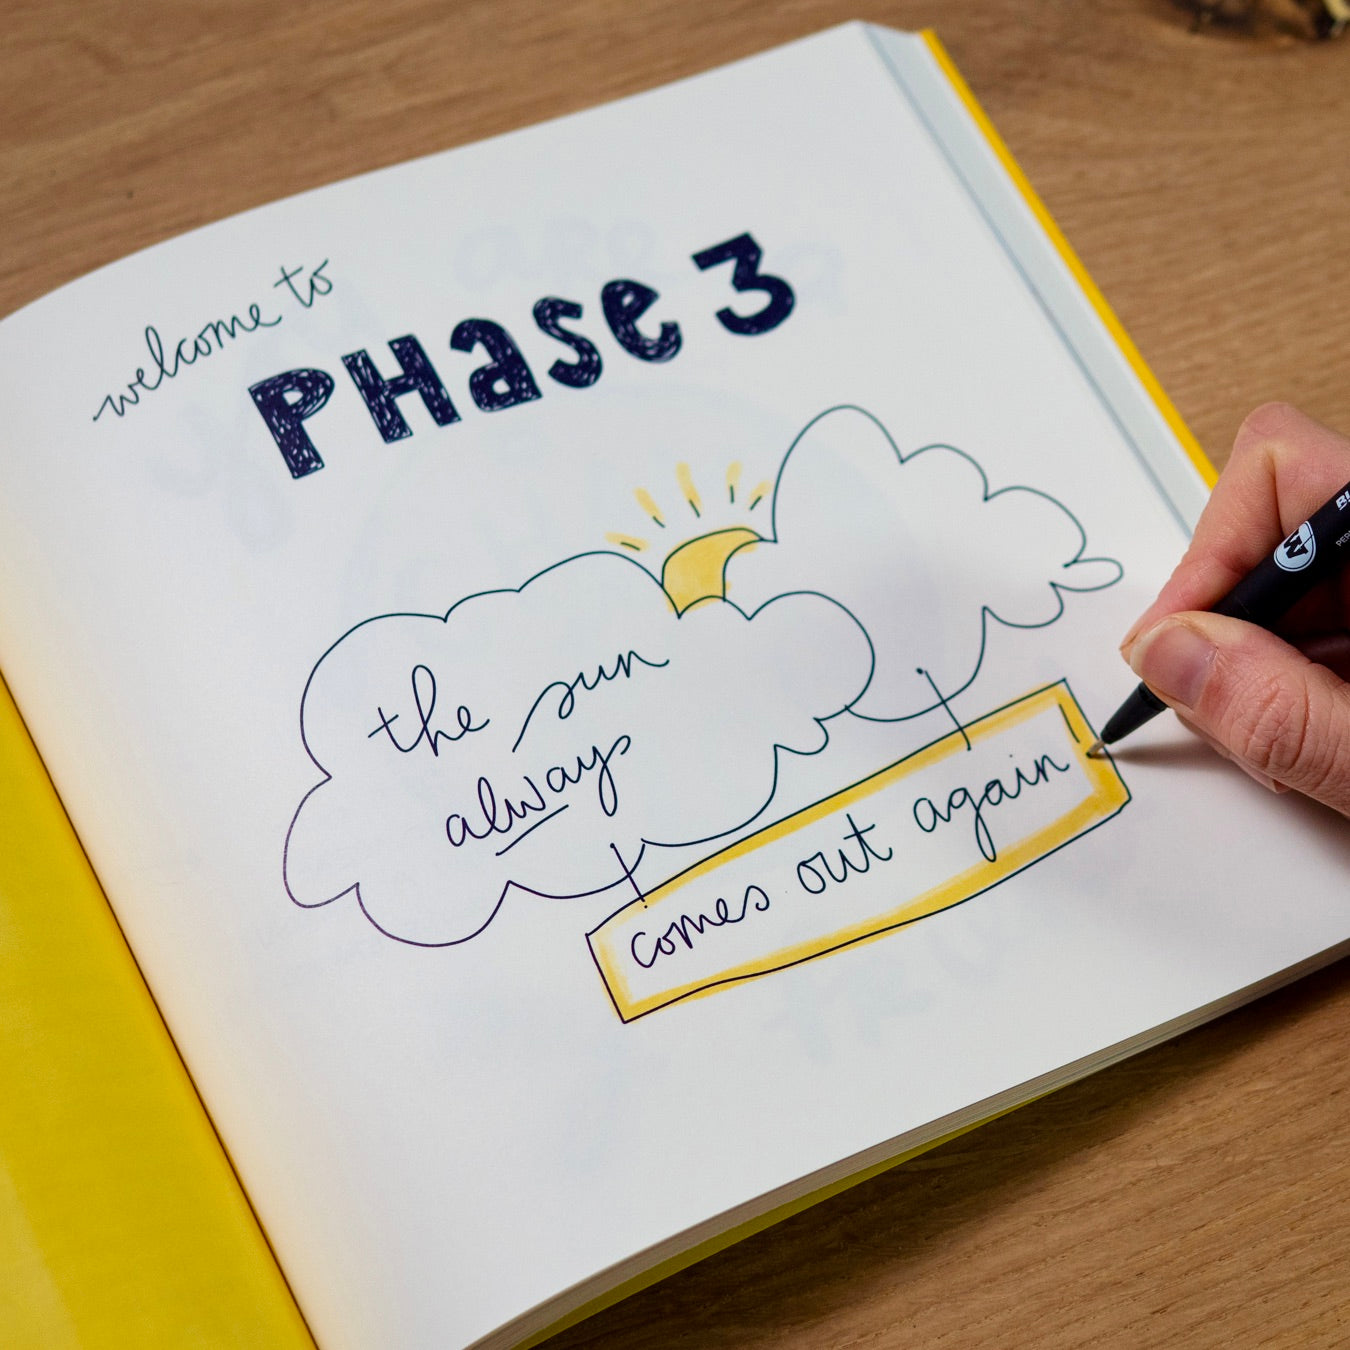 welcome to
PHase 3
the sun
always
comes out again